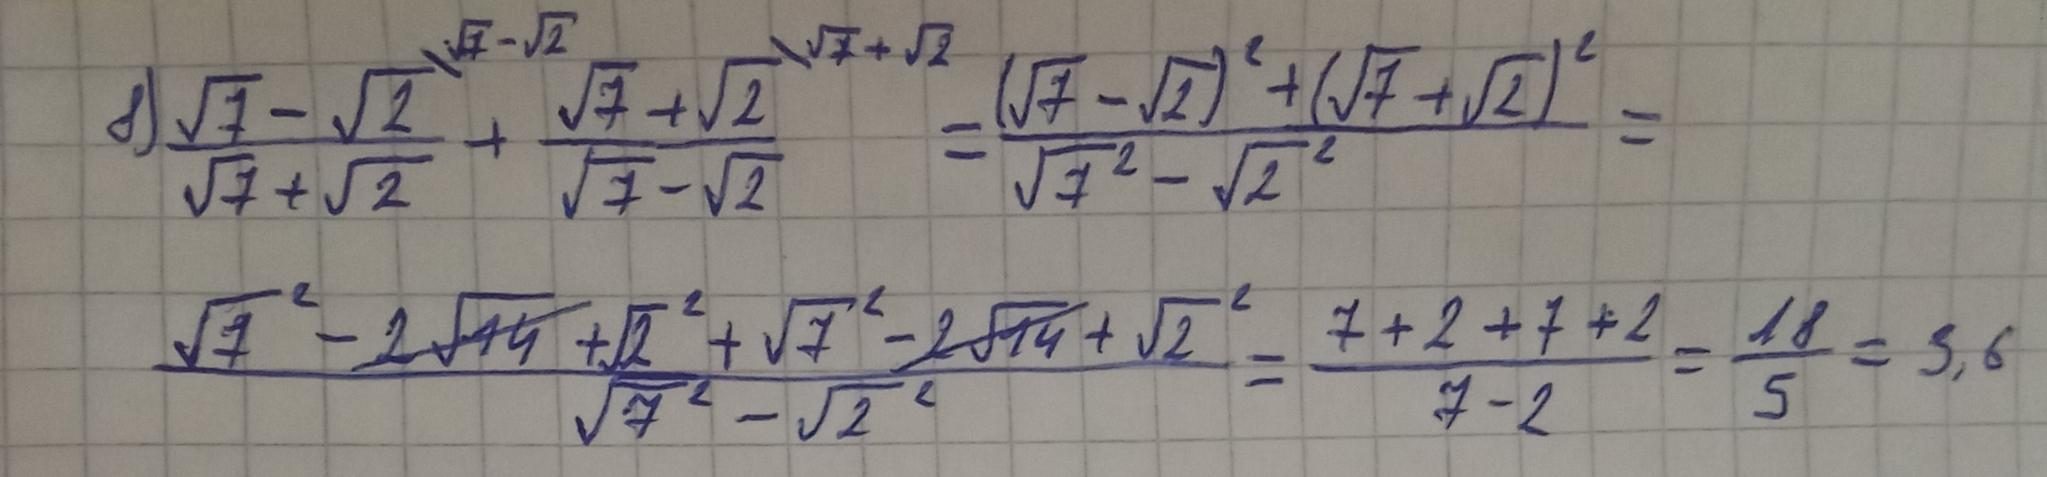 8) (√7 - √2)/(√7 + √2) \√7 - √2 + (√7 + √2)/(√7 - √2) \√7 + √2 = ((√7 - √2)² + (√7 + √2)²)/(√7² - √2²) =
(√7² - 2√14 + √2² + √7² - 2√14 + √2²)/(√7² - √2²) = (7 + 2 + 7 + 2)/(7 - 2) = 18/5 = 3,6